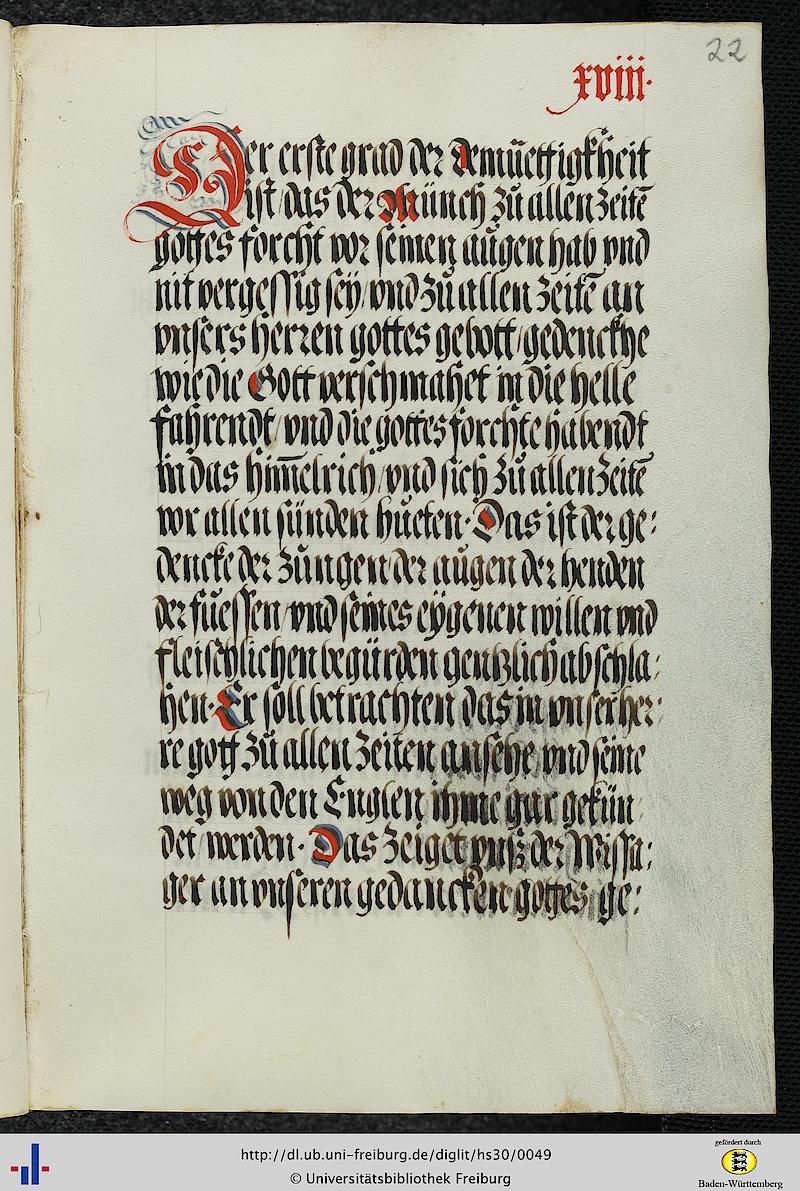 22
xviii·
Der erste grad der demüettigkheit
ist/das der Münch zů allen zeitē
gottes forcht vor seinen augen hab vnd
nit vergessig seÿ/vnd zů allen zeitē an
vnsers herren gottes gebott/gedenckhe
wie die Gott verschmahet in die helle
fahrendt/vnd die gottes forchte habendt
in das him̄elrich/vnd sich zů allen zeitē
vor allen sünden hüeten· Das ist der ge:
dencke der zungen/der augen der henden
der füessen/vnd seines eÿgenen willen vnd
fleischlichen begürden gentzlich abschla:
hen· Er soll betrachten das in vnser her:
re gott zů allen zeiten ansehe vnd seine
weg von den Englen ihme gar gekün
det/werden· Das zeiget vnß der Wissa:
ger an vnseren gedancken gottes ge:
http://dl.ub.uni-freiburg.de/diglit/hs30/0049
© Universitätsbibliothek Freiburg
gefördert durch
Baden-Württemberg